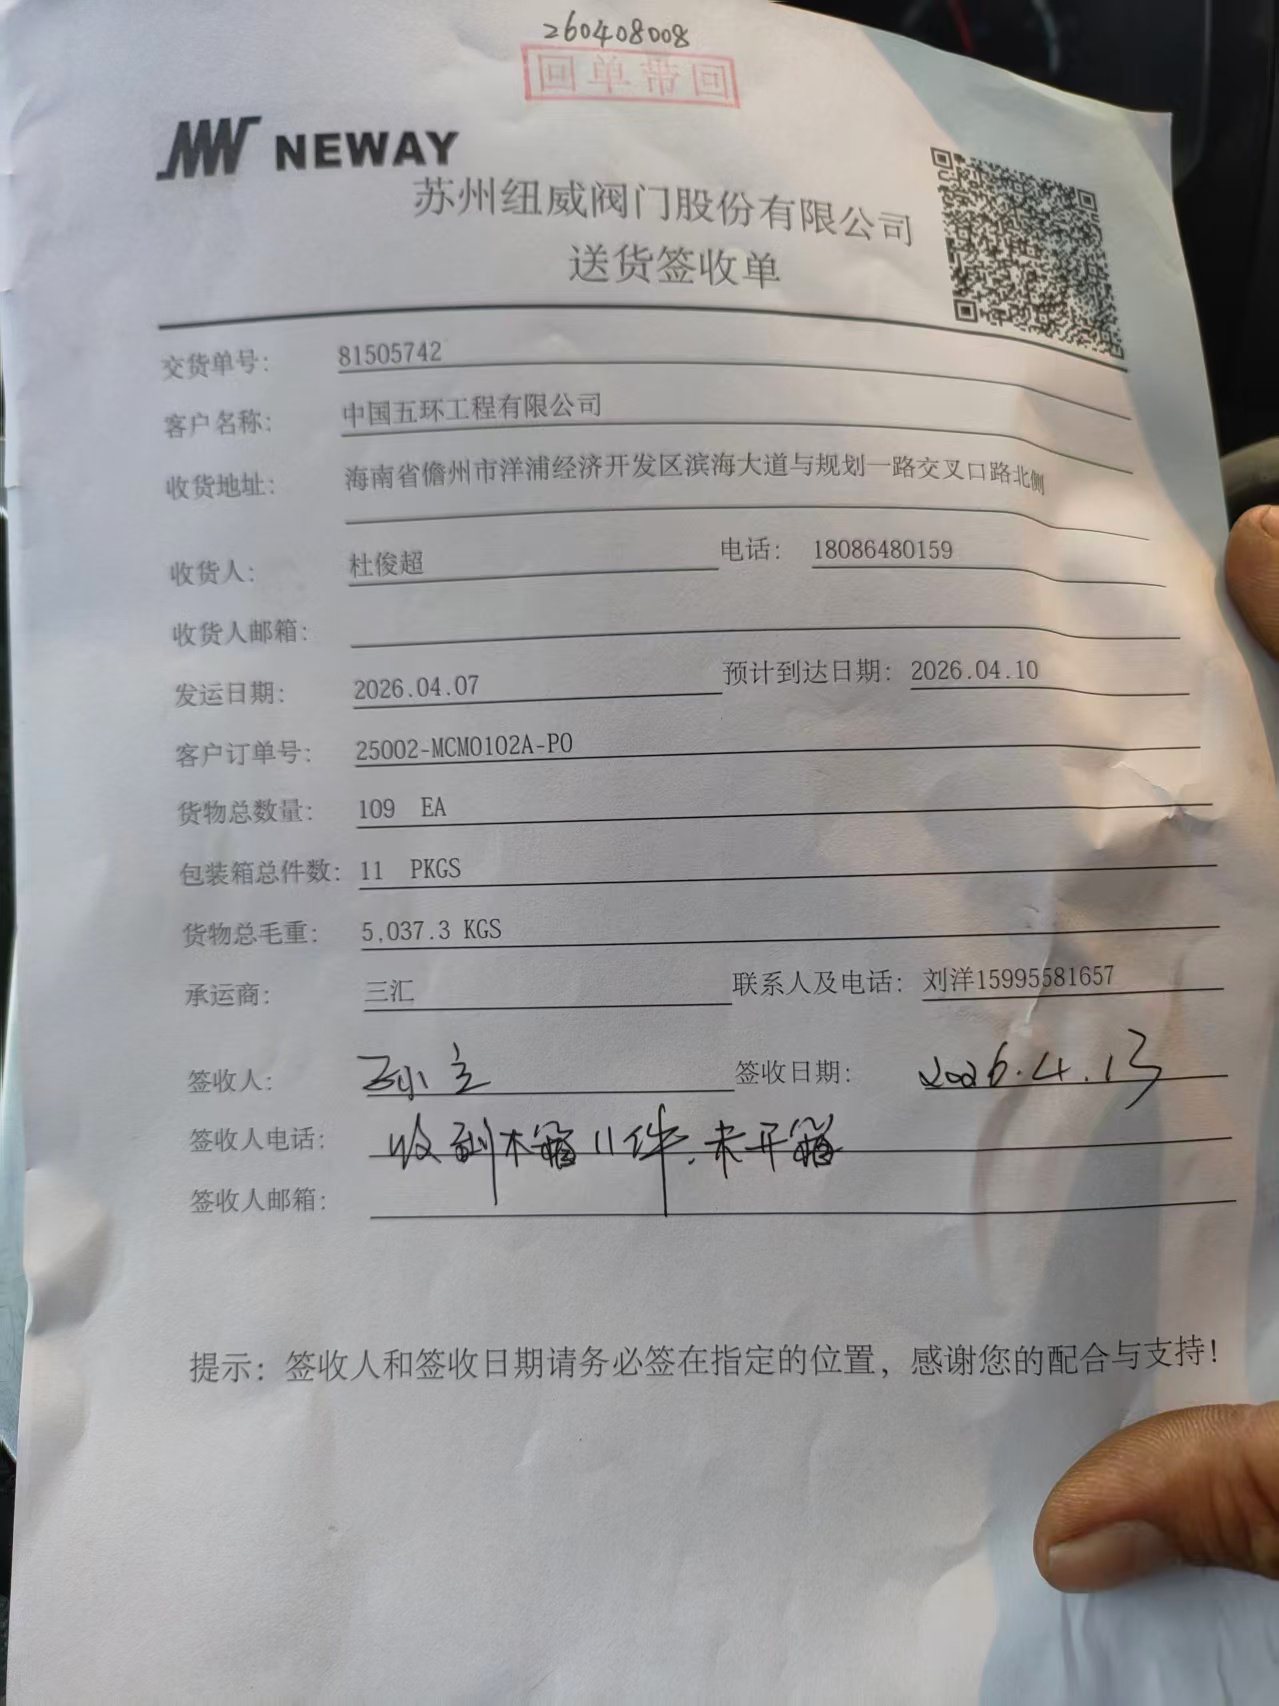 260408008
回单带回
NEWAY
苏州纽威阀门股份有限公司
送货签收单
交货单号: 81505742
客户名称: 中国五环工程有限公司
收货地址: 海南省儋州市洋浦经济开发区滨海大道与规划一路交叉口路北侧
收货人: 杜俊超 电话: 18086480159
收货人邮箱:
发运日期: 2026.04.07 预计到达日期: 2026.04.10
客户订单号: 25002-MCM0102A-PO
货物总数量: 109 EA
包装箱总件数: 11 PKGS
货物总毛重: 5,037.3 KGS
承运商: 三汇 联系人及电话: 刘洋15995581657
签收人: 孙立 签收日期: 2026.4.13
签收人电话: 收到木箱11件.未开箱
签收人邮箱:
提示: 签收人和签收日期请务必签在指定的位置，感谢您的配合与支持!